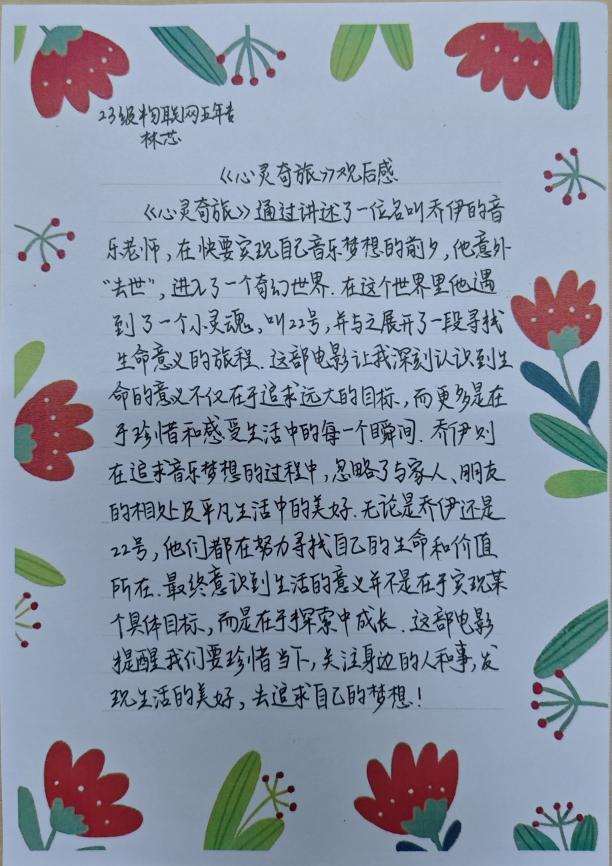 23级物联网五年专
林芯
《心灵奇旅》观后感
《心灵奇旅》通过讲述了一位名叫乔伊的音
乐老师，在快要实现自己音乐梦想的前夕，他意外
“去世”，进入了一个奇幻世界．在这个世界里他遇
到了一个小灵魂，叫22号，并与之展开了一段寻找
生命意义的旅程．这部电影让我深刻认识到生
命的意义不仅在于追求远大的目标，而更多是在
于珍惜和感受生活中的每一个瞬间．乔伊则
在追求音乐梦想的过程中，忽略了与家人、朋友
的相处及平凡生活中的美好．无论是乔伊还是
22号，他们都在努力寻找自己的生命和价值
所在．最终意识到生活的意义并不是在于实现某
个具体目标，而是在于探索中成长．这部电影
提醒我们要珍惜当下，关注身边的人和事，发
现生活的美好，去追求自己的梦想！